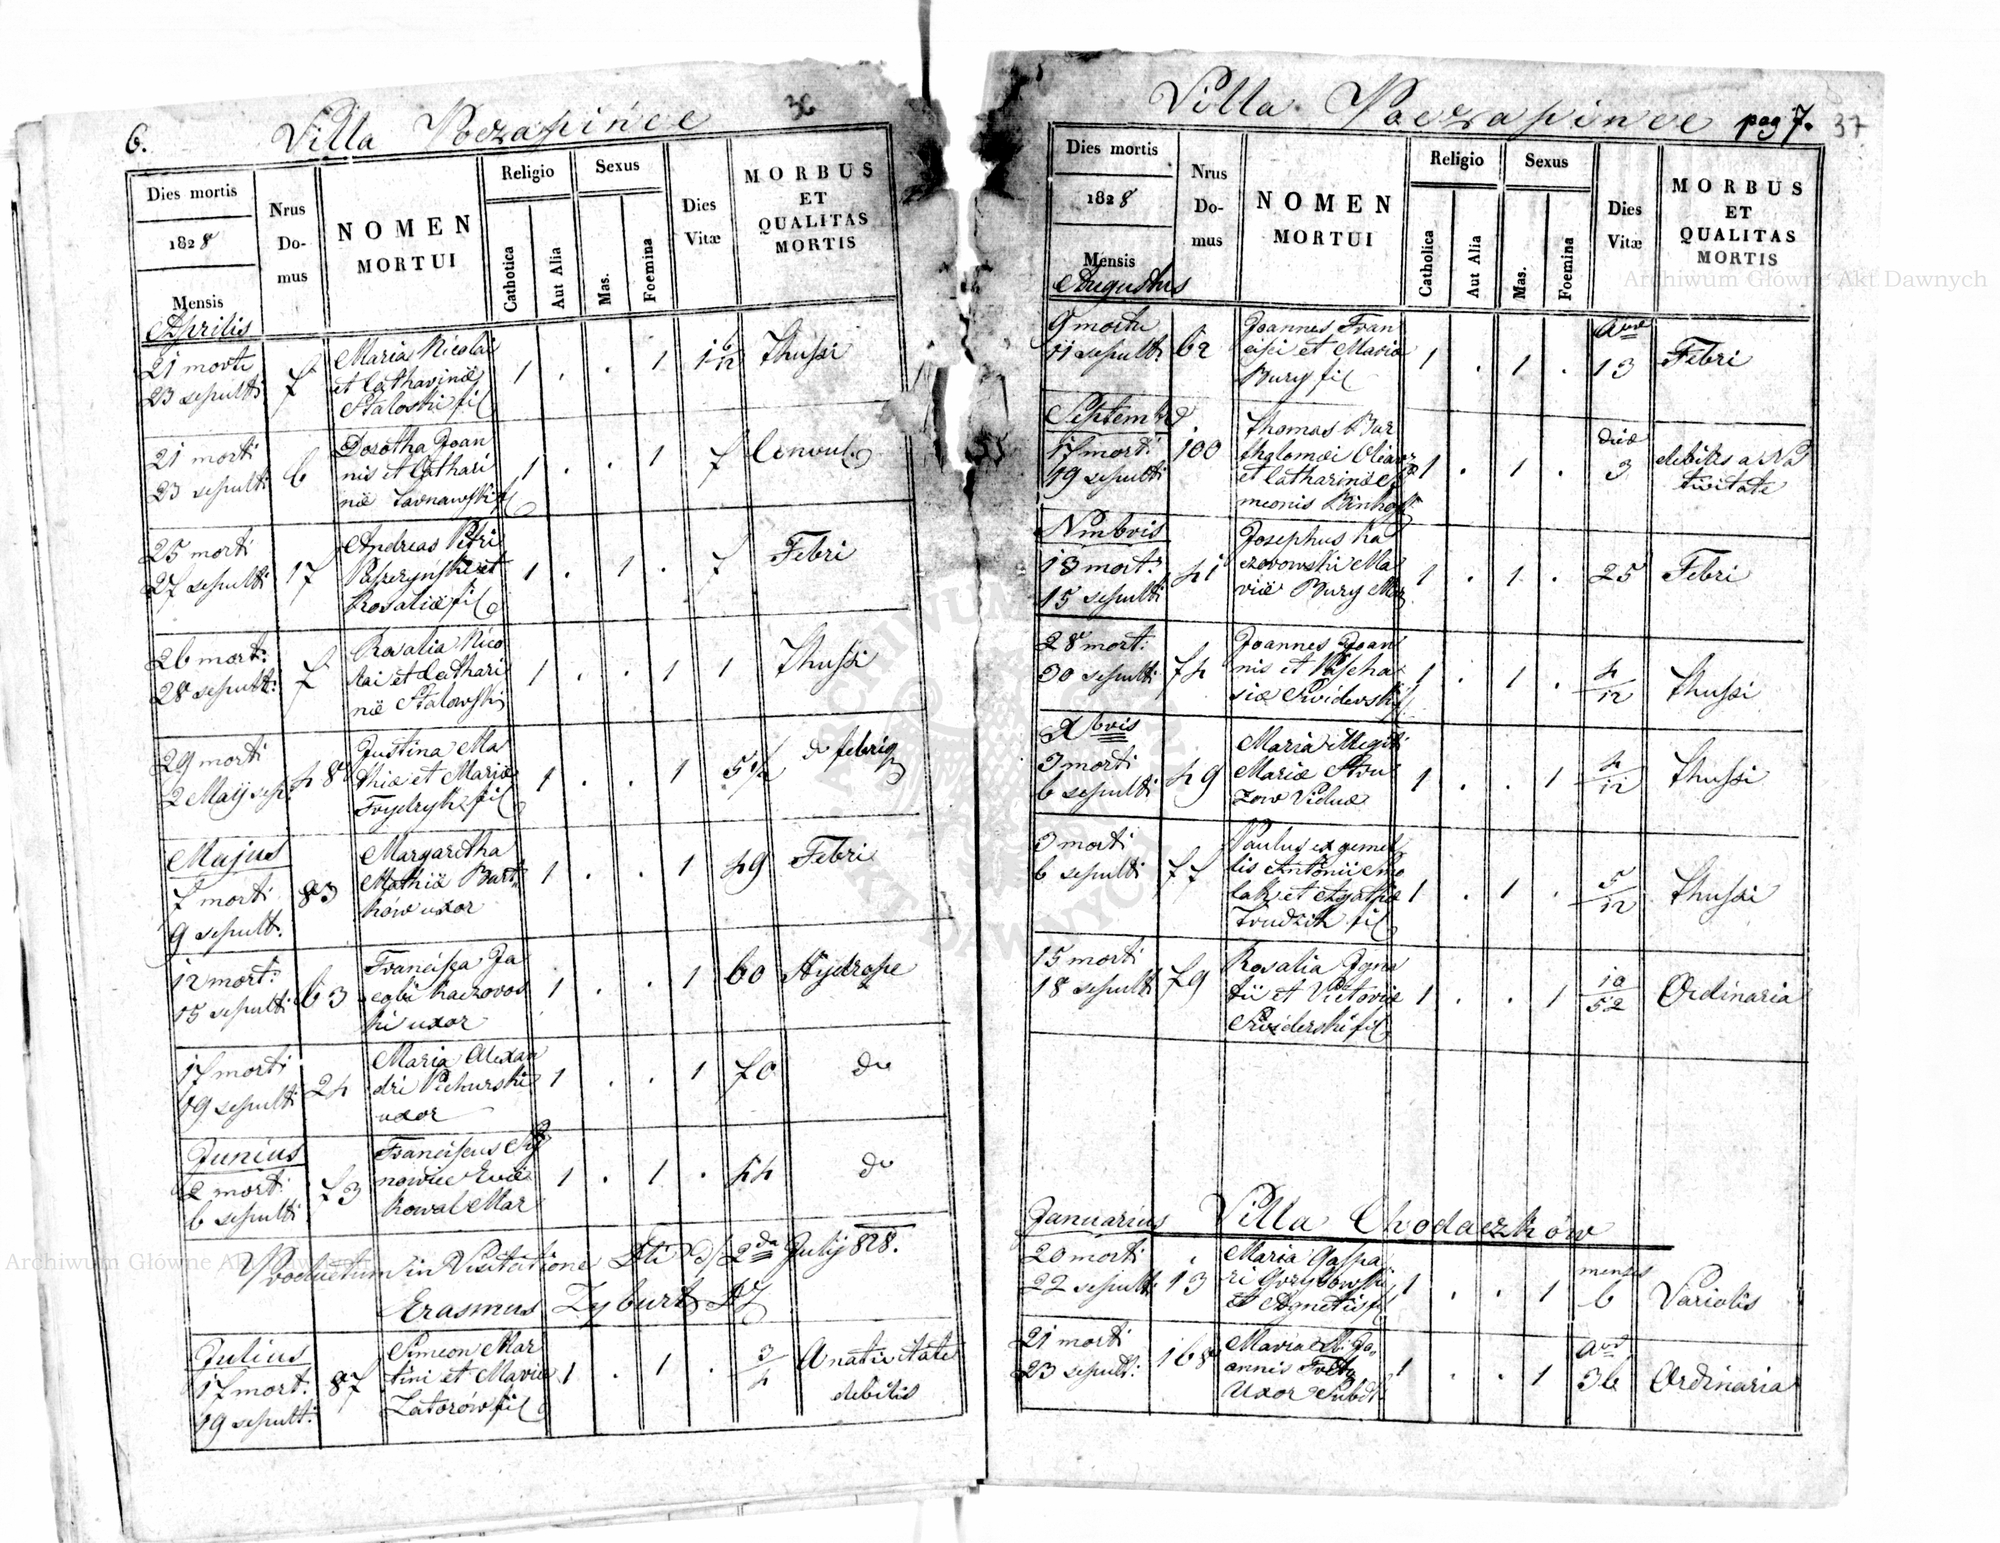 6.
Villa Poczapińce
36
Dies mortis
1828
Mensis
Nrus
Do-
mus
NOMEN
MORTUI
Religio
Catholica
Aut Alia
Sexus
Mas.
Foemina
Dies
Vitæ
MORBUS
ET
QUALITAS
MORTIS
Aprilis
21 morti
23 sepulti
7
Maria Nicolai
et Catharinæ
Staloski fil
1 . . 1
Thussi
21 morti
23 sepulti
6
Dorotha Joan
nis et Cathari
næ Tarnawski fil
1 . . 1
7
Convul.
25 morti
27 sepulti
17
Andreas Petri
et
Rosaliæ fil
1 . 1 .
7
Febri
26 mort:
28 sepulti:
7
Rosalia Nico
lai et Cathari
næ Stalowski
1 . . 1
1
Thussi
29 morti
2 Maij sep.
48
Justina Ma
thiæ et Mariæ
Frydryk fil
1 . . 1
5 1/2
Majus
7 morti
9 sepult.
83
Margaretha
Mathiæ Bart
ków uxor
1 . . 1
49
Febri
12 mort:
15 sepulti
63
Francisca Ja
cobi Kaczorows
ki uxor
1 . . 1
60
Hydrope
17 morti
19 sepulti
24
Maria Alexan
dri
uxor
1 . . 1
70
do
Junius
2 morti
6 sepulti
73
Franciscus
Evæ
Kowal Mar
1 . 1 .
44
do
Productum in Visitatione Dli d. 2da Julij 828.
Erasmus Zyburt
Julius
17 mort:
19 sepulti:
87
Simeon Mar
tini et Mariæ
Zatorów fil
1 . 1 .
3/4
A nativitate
debilis
Villa Poczapince
pag 7.
37
Dies mortis
1828
Mensis
Augustus
Nrus
Do-
mus
NOMEN
MORTUI
Religio
Catholica
Aut Alia
Sexus
Mas.
Foemina
Dies
Vitæ
MORBUS
ET
QUALITAS
MORTIS
9 mortu
11 sepulti
62
Joannes Fran
cisci et Maria
Bury fil
1 . 1 .
13
Febri
Septembr
17 mort:
19 sepulti
100
Thomas Bar
tholomæi
et Catharinæ
1 . 1 .
dies
3
debilis a Na
tivitate
Nmbris
13 mort:
15 sepulti
41
Josephus Ka
czorowski Ma
riæ Bury Mar
1 . 1 .
25
Febri
28 mort:
30 sepulti
74
Joannes Joan
nis et Pascha
siæ Swiderski fil
1 . 1 .
4/12
Thussi
Xbris
3 morti
6 sepulti
49
Maria illegit
Mariæ
Viduæ
1 . . 1
4/12
Thussi
3 morti
6 sepulti
77
Paulus ex gemel
lis Antonii
et Agathæ
fil
1 . 1 .
5/12
Thussi
15 morti
18 sepulti
79
Rosalia Igna
tii et Victoriæ
Swiderski fil
1 . . 1
10/52
Ordinaria
Januarius
Villa Chodaczków
20 morti
22 sepulti
13
Maria Gaspa
ri
et Agnetis fil
1 . . 1
menses
6
Variolis
21 morti
23 sepulti:
168
Maria Jo
annis
Uxor
1 . . 1
36
Ordinaria
Archiwum Główne Akt Dawnych
Archiwum Główne Akt Dawnych
ARCHIWUM GŁÓWNE AKT DAWNYCH